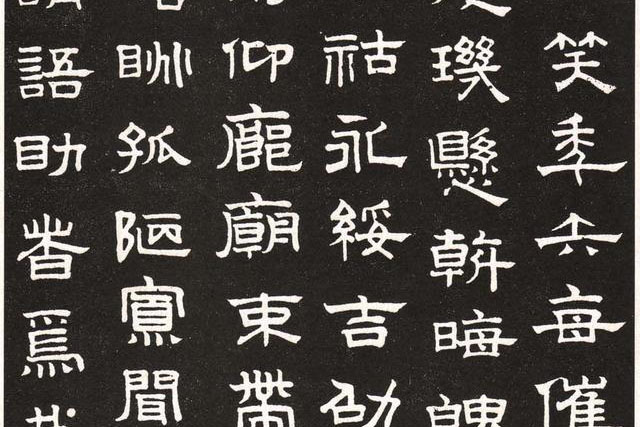 笑年矢每催
璣懸斡晦魄
祜永綏吉劭
仰廊廟束帶
眺孤陋寡聞
語助者焉